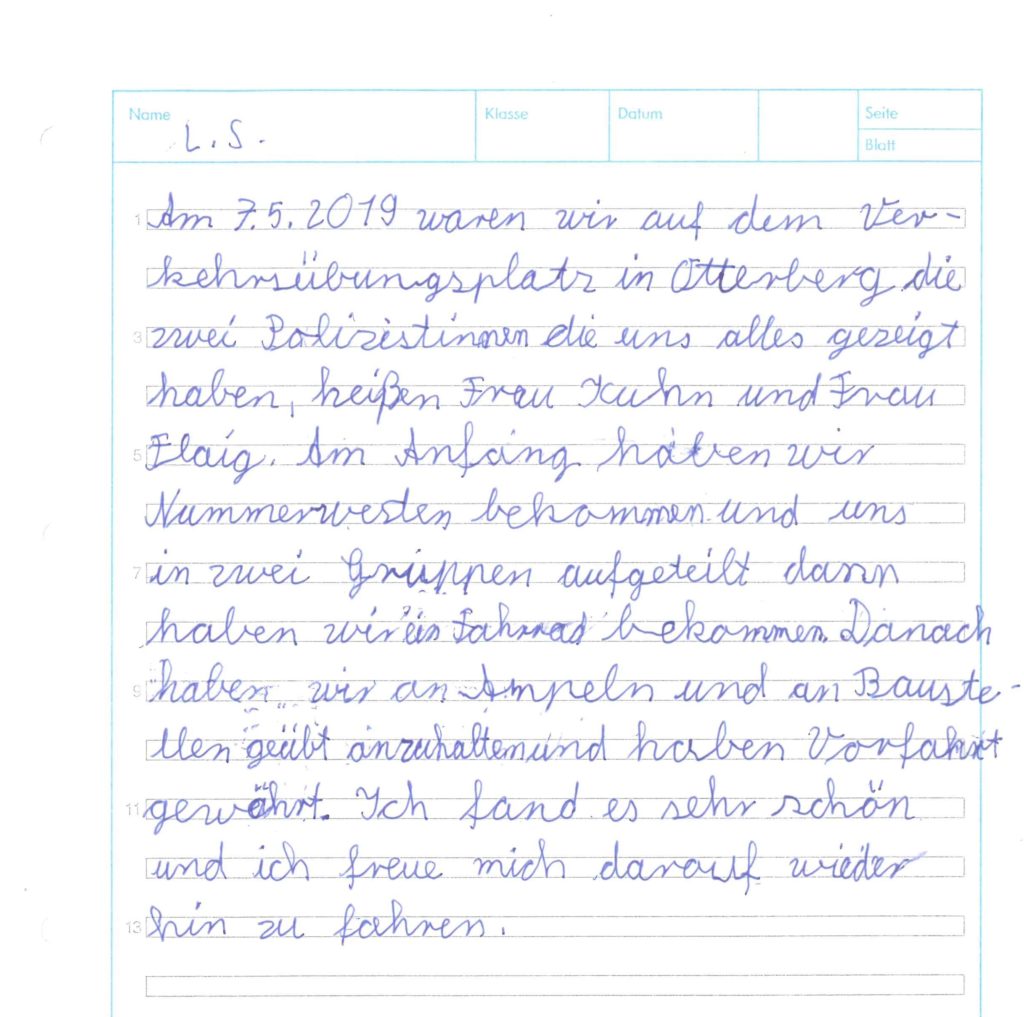 Name
L. S.
Klasse
Datum
Seite
Blatt
1 Am 7.5.2019 waren wir auf dem Ver-
kehrsübungsplatz in Otterberg die
3 zwei Polizistinnen die uns alles gezeigt
haben, heißen Frau Kuhn und Frau
5 Flaig. Am Anfang haben wir
Nummerwesten bekommen und uns
7 in zwei Gruppen aufgeteilt dann
haben wir ein Fahrrad bekommen. Danach
9 haben wir an Ampeln und an Bauste-
llen geübt anzuhalten und haben Vorfahrt
11 gewährt. Ich fand es sehr schön
und ich freue mich darauf wieder
13 hin zu fahren.